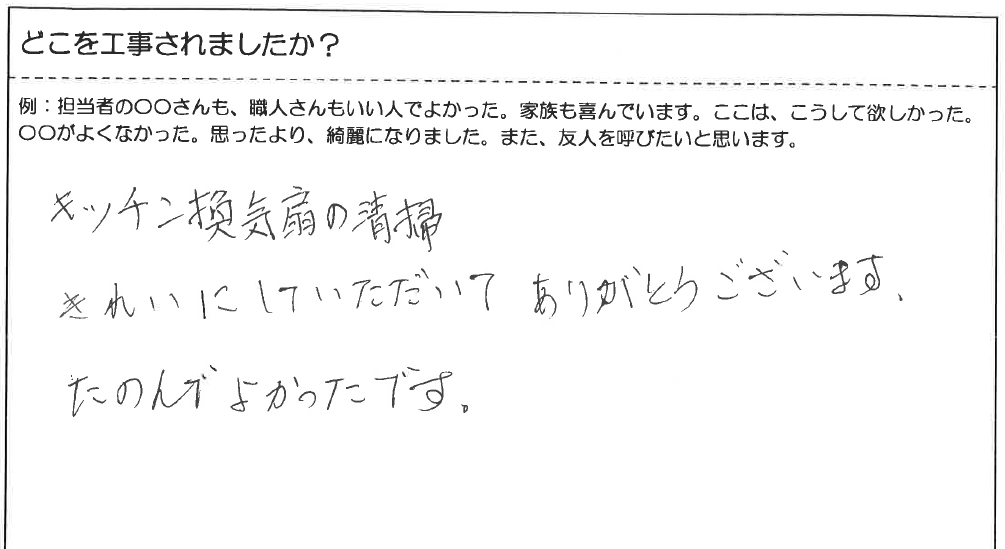 どこを工事されましたか？
例：担当者の〇〇さんも、職人さんもいい人でよかった。家族も喜んでいます。ここは、こうして欲しかった。
〇〇がよくなかった。思ったより、綺麗になりました。また、友人を呼びたいと思います。
キッチン換気扇の清掃
きれいにしていただいて ありがとうございます、
たのんでよかったです。